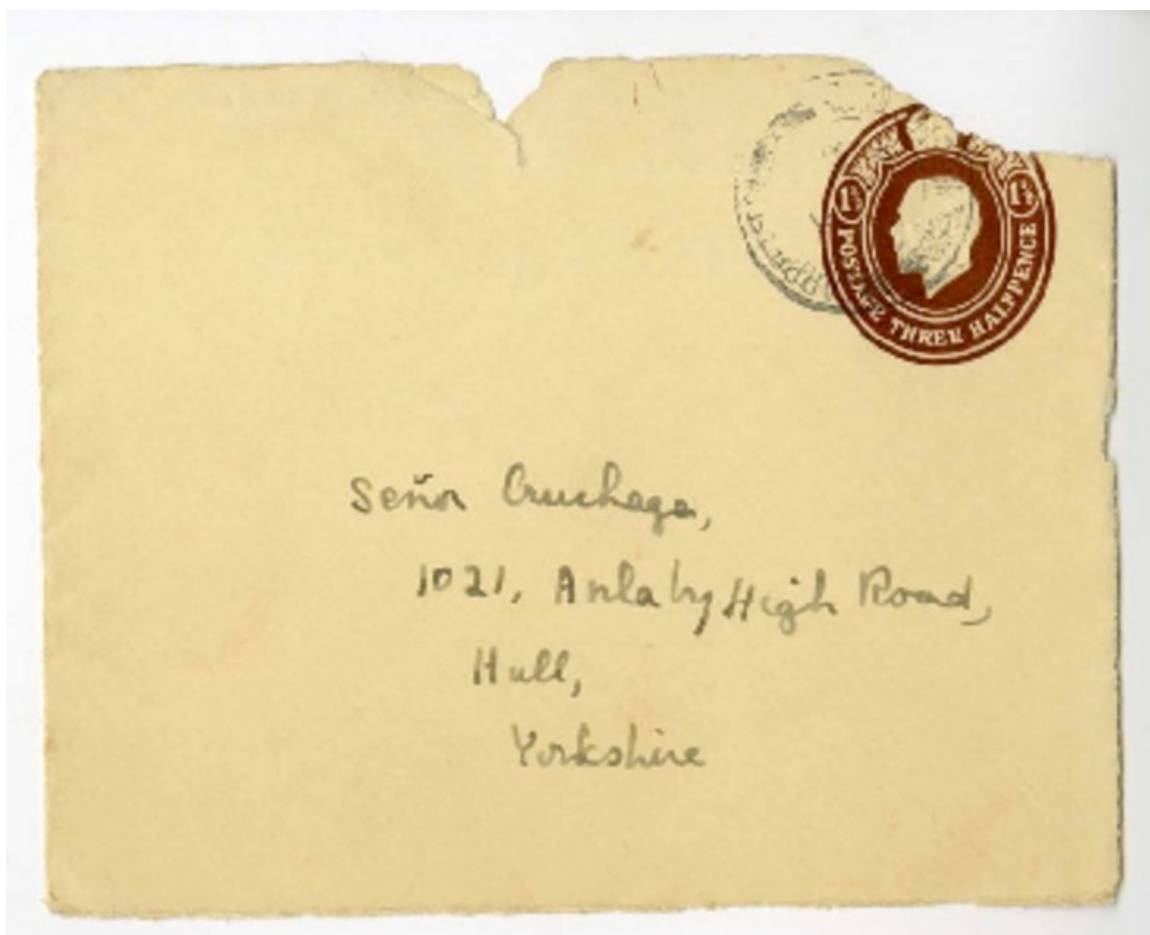 1½ 1½
POSTAGE THREE HALFPENCE
Señor Cruchaga,
1021, Anlaby High Road,
Hull,
Yorkshire